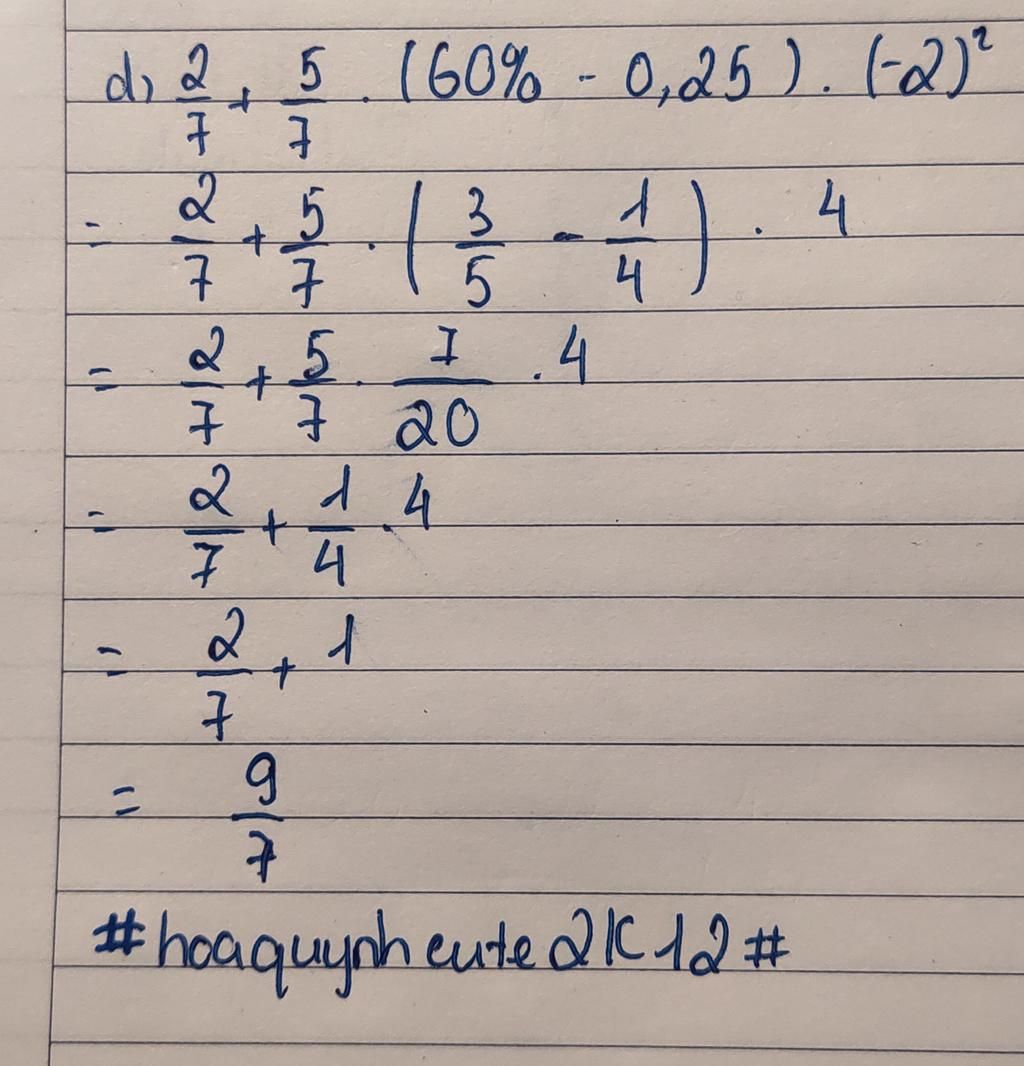 d, 2/7 + 5/7 . (60% - 0,25) . (-2)²
= 2/7 + 5/7 . (3/5 - 1/4) . 4
= 2/7 + 5/7 . 7/20 . 4
= 2/7 + 1/4 . 4
= 2/7 + 1
= 9/7
#hoaquynh cute 2K12#